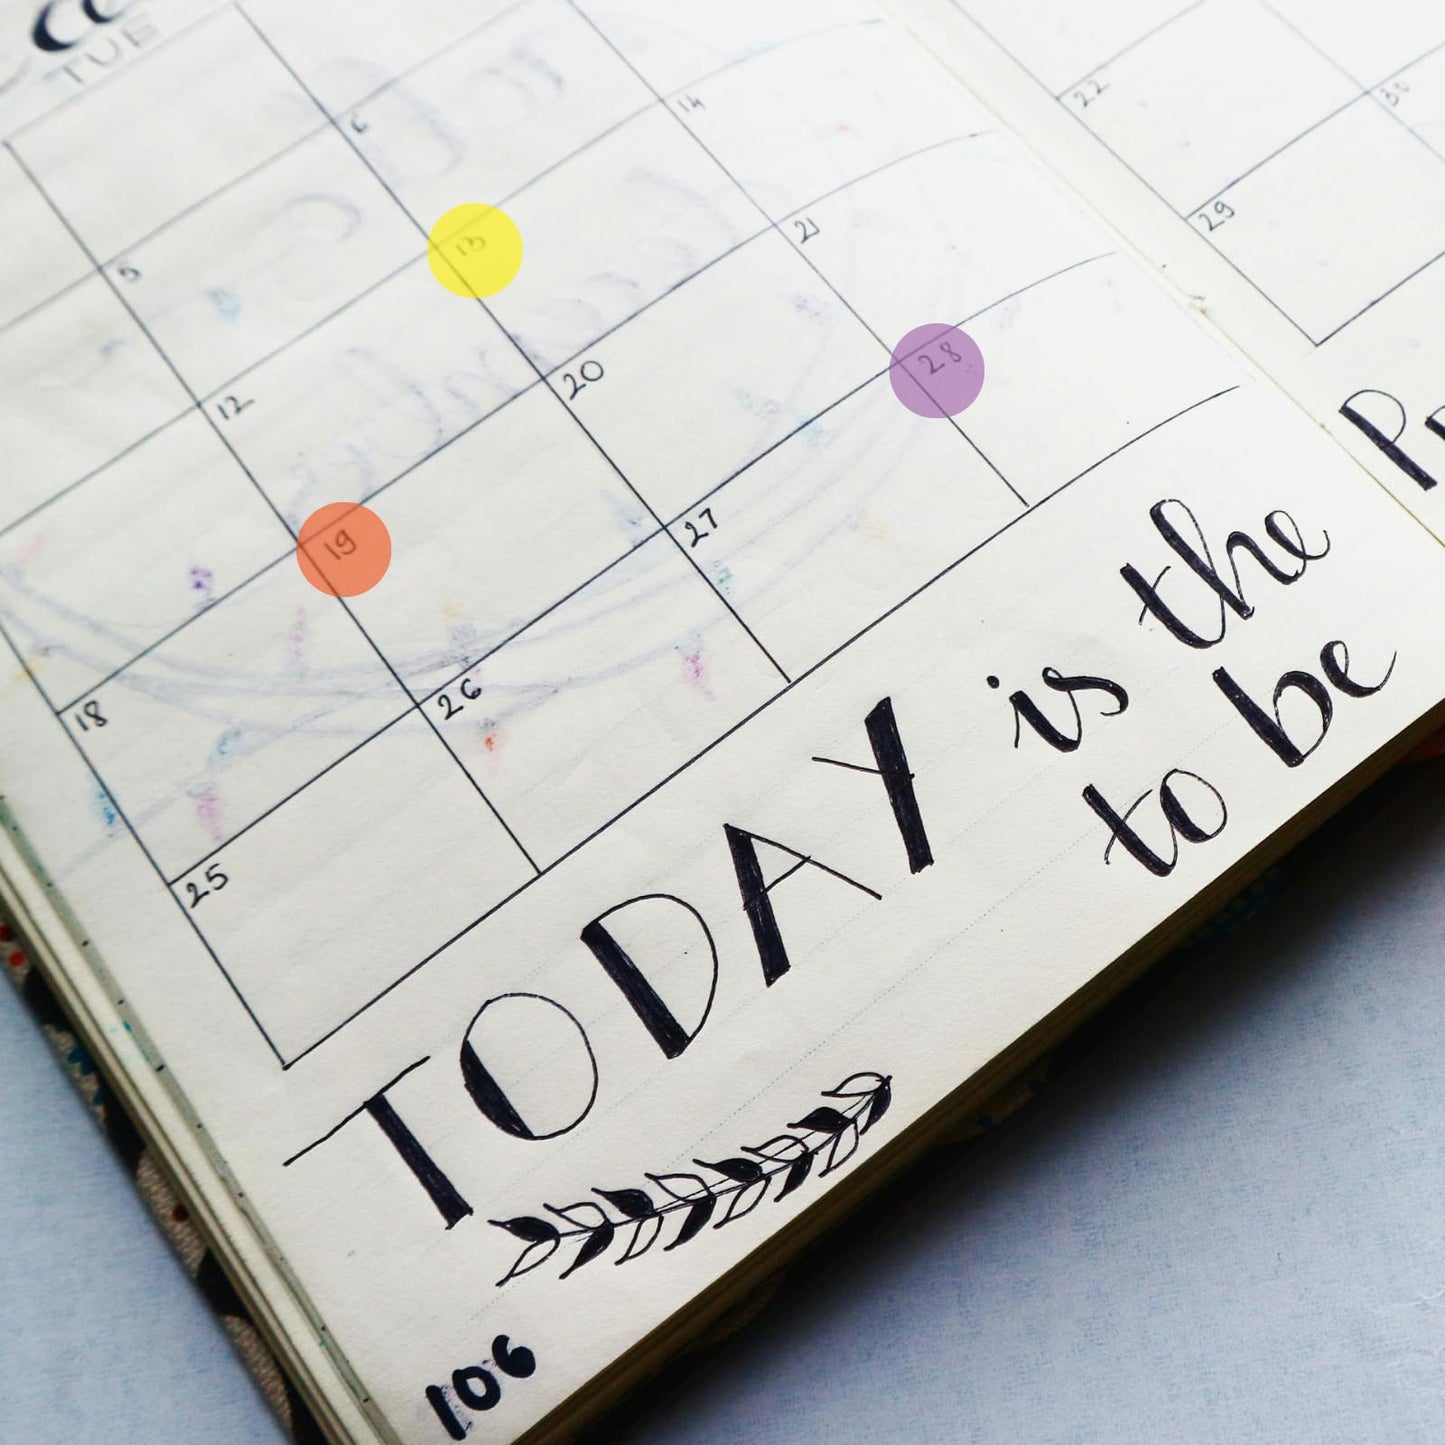 TUE
6
14
5
13
21
12
20
28
19
27
18
26
25
22
30
29
TODAY is the
to be
106